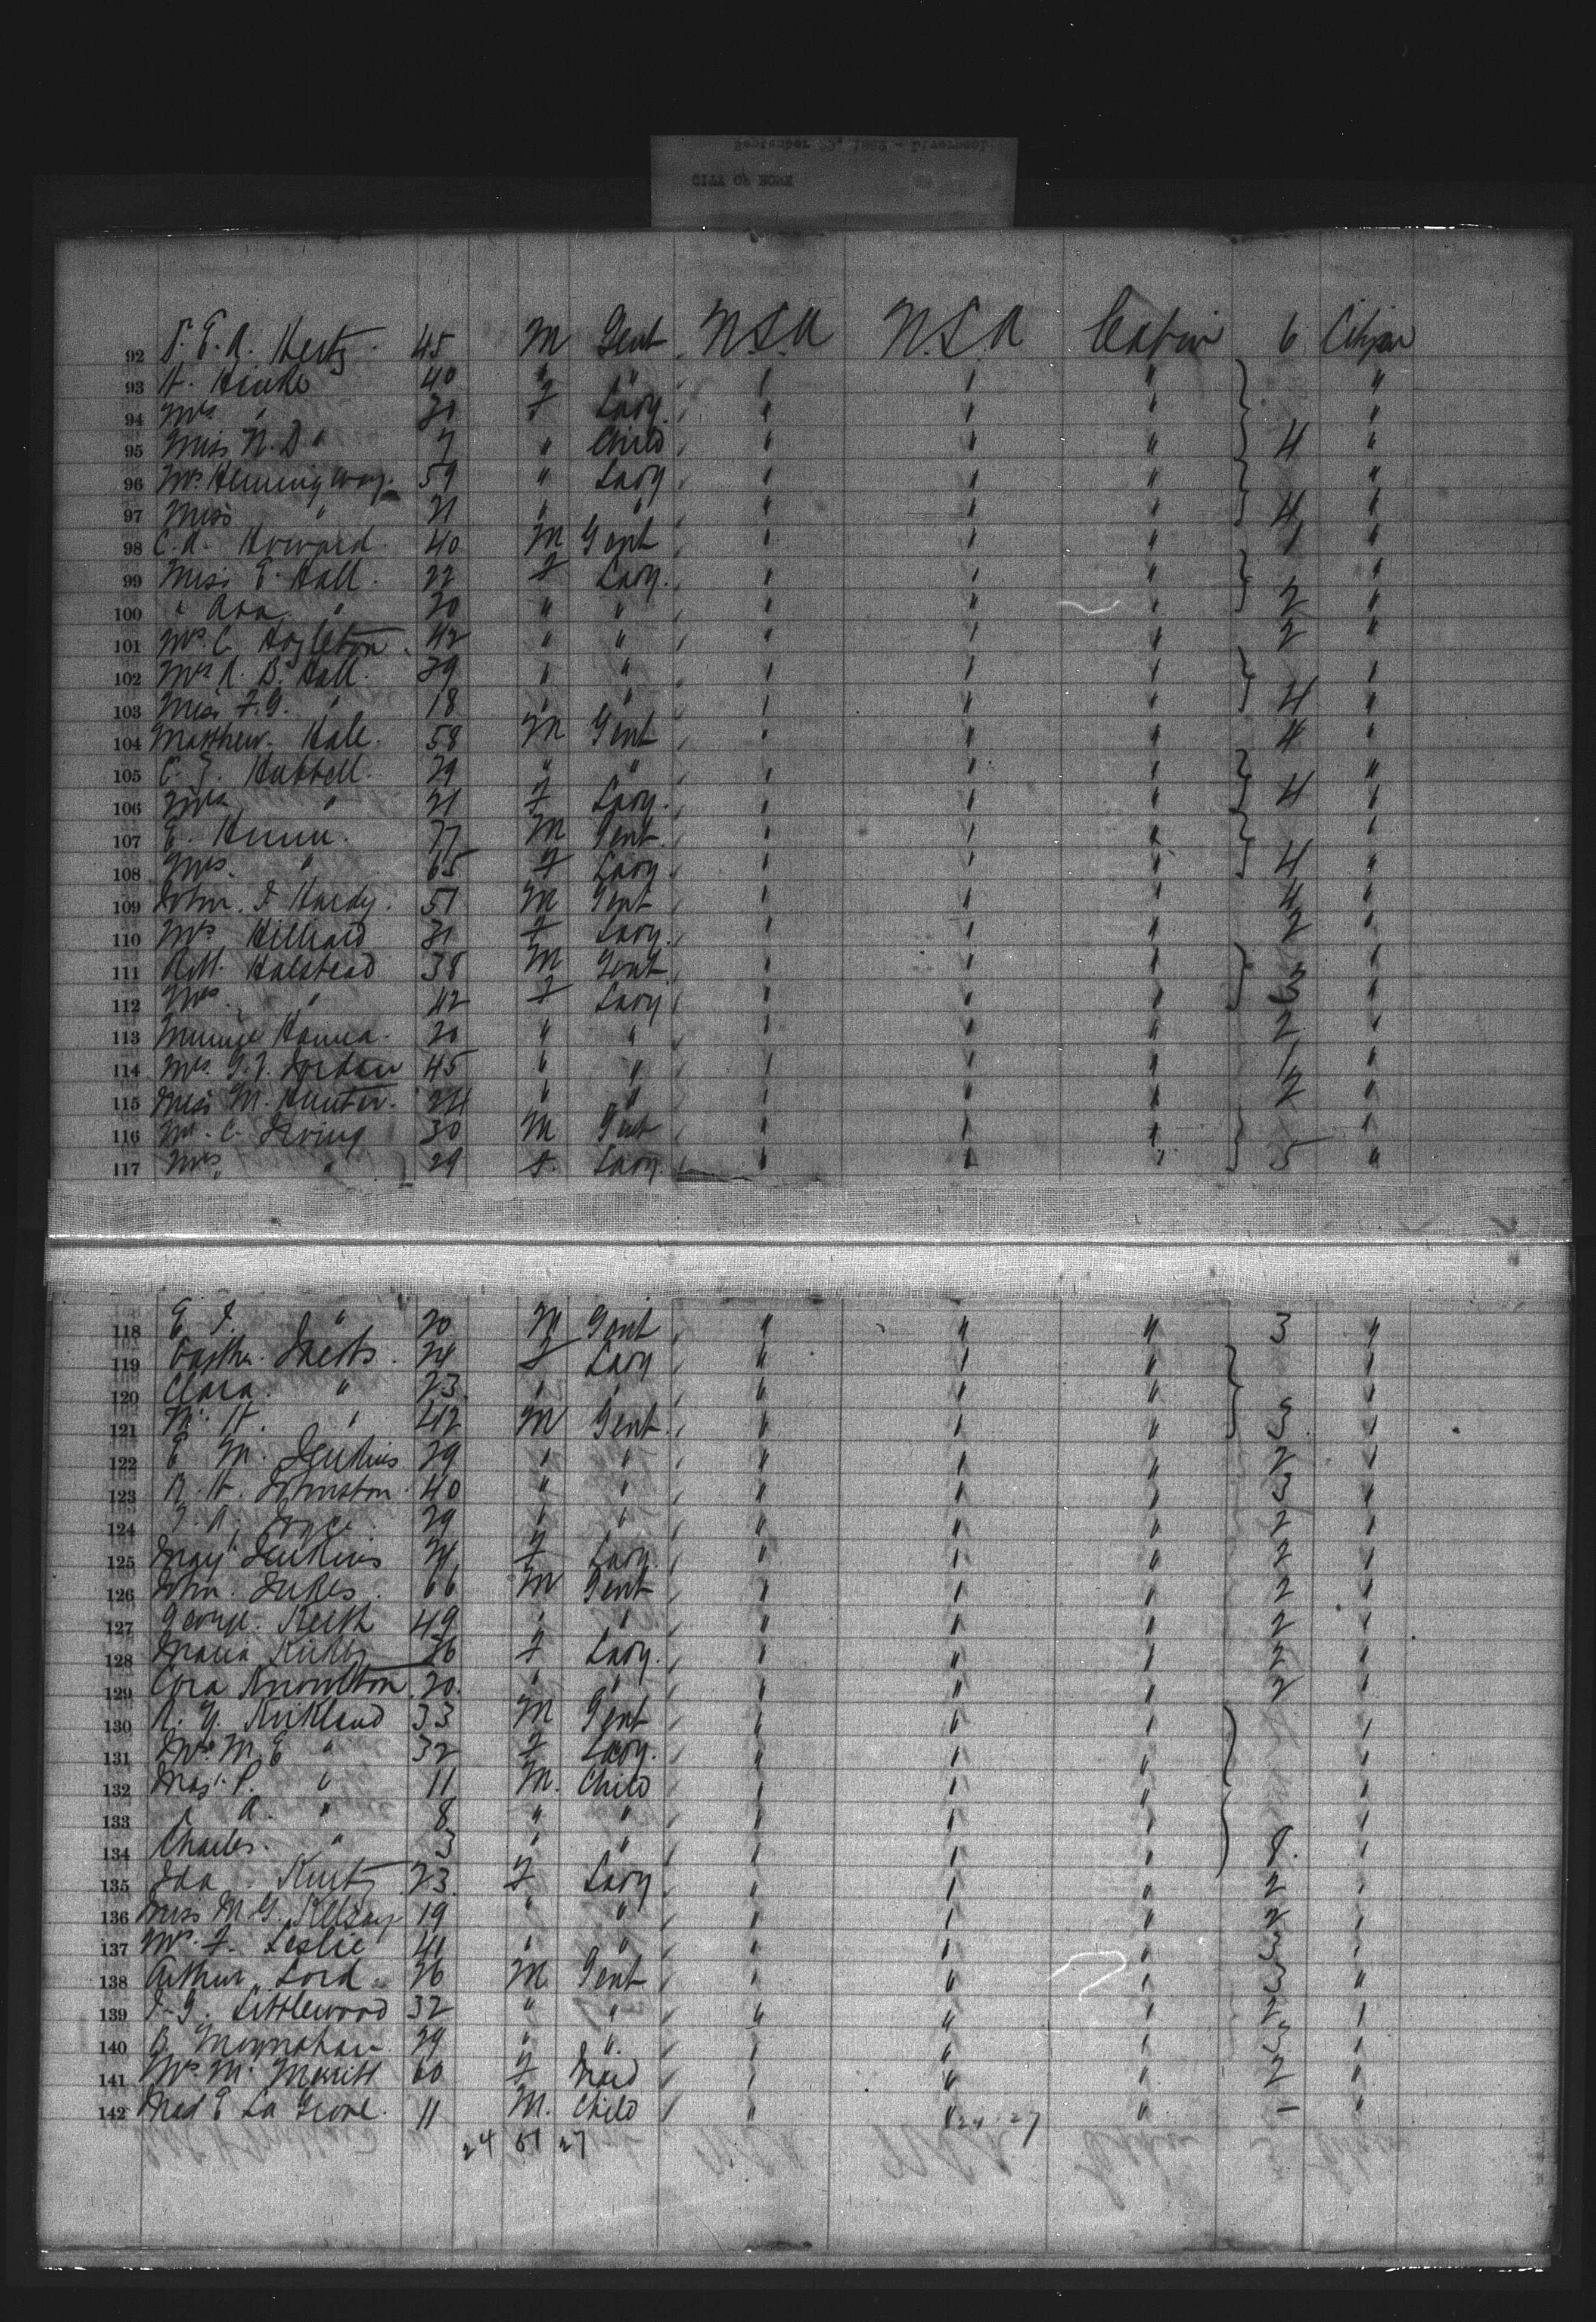 CITY OF ROME
September 23, 1892 - Liverpool
92 E. A. Hertz. 45 M Gent U.S.A U.S.A Cabin 6 Citizen
93 H. Hinke 40 " " " " " "
94 Mrs " 30 F Lady " " " "
95 Miss N. D " 7 " Child " " " 4 "
96 Mrs. Hemingway. 59 " Lady " " " "
97 Miss " 21 " " " " " 4 "
98 C. A. Howard. 40 M Gent " " " 1 "
99 Miss E. Hall. 22 F Lady. " " " "
100 " Ada " 20 " " " " " 2 "
101 Mrs. C. Hazleton. 42 " " " " " 2 "
102 Mrs. R. B. Hall. 39 " " " " " "
103 Miss F. G. " 18 " " " " " 4 "
104 Matthew. Hale. 58 M Gent " " " 4 "
105 C. J. Hubbell. 29 " " " " " "
106 Mrs " 21 F Lady. " " " 4 "
107 E. Hunn. 77 M Gent. " " " "
108 Mrs. " 65 F Lady. " " " 4 "
109 John. F Hardy. 51 M Gent " " " 4 "
110 Mrs. Hilliard 31 F Lady. " " " 2 "
111 Robt. Halstead 38 M Gent " " " "
112 Mrs. " 42 F Lady " " " 3 "
113 Minnie Hanna. 20 " " " " " 2 "
114 Mrs. G. J. Jordan 45 " " " " " 1 "
115 Miss M. Hunter. 24 " " " " " 2 "
116 Mr. C. Irving 30 M Gent " " " "
117 Mrs. " 29 F. Lady. " " " 5 "
118 E. I. " 20 M Gent " " " 3 "
119 24 F Lady " " " "
120 Clara. " 23. " " " " " "
121 H. " 42 M Gent. " " " 3 "
122 E M. Jenkins 29 " " " " " 2 "
123 R. H. Johnston. 40 " " " " " 3 "
124 Joyce. 29 " " " " " 2 "
125 May Jenkins 24 F Lady. " " " 2 "
126 John. Jukes. 66 M Gent " " " 2 "
127 George. Keith 49 " " " " " 2 "
128 Maria Kirkby 26 F Lady. " " " 2 "
129 Cora Knowlton. 20. " " " " " 2 "
130 R. G. Kirkland 33 M Gent " " " "
131 Mrs. M. E " 32 F Lady. " " " "
132 Mast. P. " 11 M. Child " " " "
133 " A. " 8 " " " " " "
134 Charles. " 3 " " " " " 8. "
135 Ida. Kurtz 23. F Lady " " " 2 "
136 Miss M. G. Kelsay 19 " " " " " 2 "
137 Mrs. F. Leslie 41 " " " " " 3 "
138 Arthur. Lord. 26 M Gent " " " 3 "
139 Littlewood 32 " " " " " 2 "
140 B. Moynahan 29 " ". " " " 3 "
141 Mrs. M. Merritt 60 F Maid " " " 2 "
142 Mad E La Grove. 11 M. Child " " " - "
24 51 27
24 27